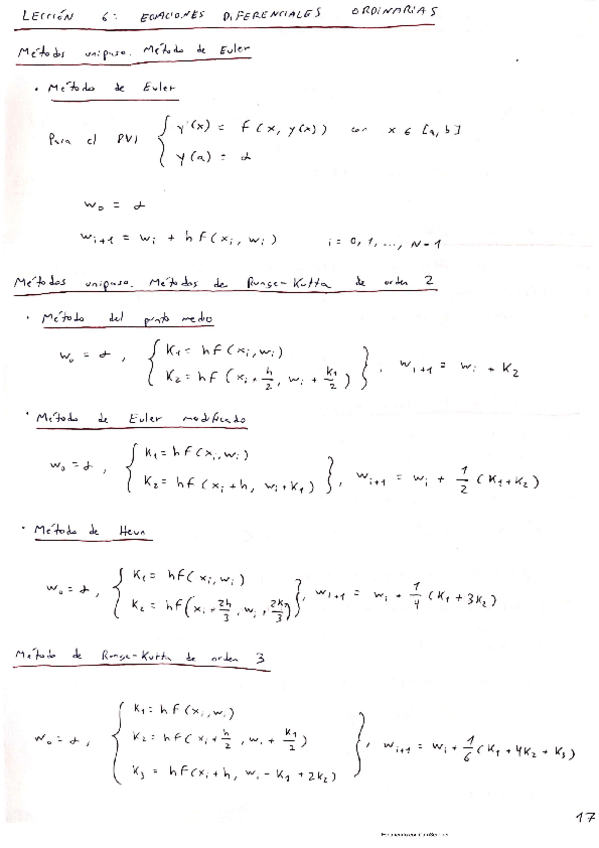 LECCIÓN 6: ECUACIONES DIFERENCIALES ORDINARIAS
Métodos unipaso. Método de Euler
· Método de Euler
Para el PVI { y'(x) = f(x, y(x)) con x ∈ [a, b]
y(a) = α
w₀ = α
wᵢ₊₁ = wᵢ + h f(xᵢ, wᵢ) i = 0, 1, ..., N-1
Métodos unipaso. Métodos de Runge-Kutta de orden 2
· Método del punto medio
w₀ = α, { K₁ = hf(xᵢ, wᵢ)
K₂ = hf(xᵢ + h/2, wᵢ + K₁/2) }, wᵢ₊₁ = wᵢ + K₂
· Método de Euler modificado
w₀ = α, { K₁ = hf(xᵢ, wᵢ)
K₂ = hf(xᵢ + h, wᵢ + K₁) }, wᵢ₊₁ = wᵢ + 1/2 (K₁ + K₂)
· Método de Heun
w₀ = α, { K₁ = hf(xᵢ, wᵢ)
K₂ = hf(xᵢ + 2h/3, wᵢ + 2K₁/3) }, wᵢ₊₁ = wᵢ + 1/4 (K₁ + 3K₂)
Método de Runge-Kutta de orden 3
w₀ = α, { K₁ = hf(xᵢ, wᵢ)
K₂ = hf(xᵢ + h/2, wᵢ + K₁/2)
K₃ = hf(xᵢ + h, wᵢ - K₁ + 2K₂) }, wᵢ₊₁ = wᵢ + 1/6 (K₁ + 4K₂ + K₃)
17